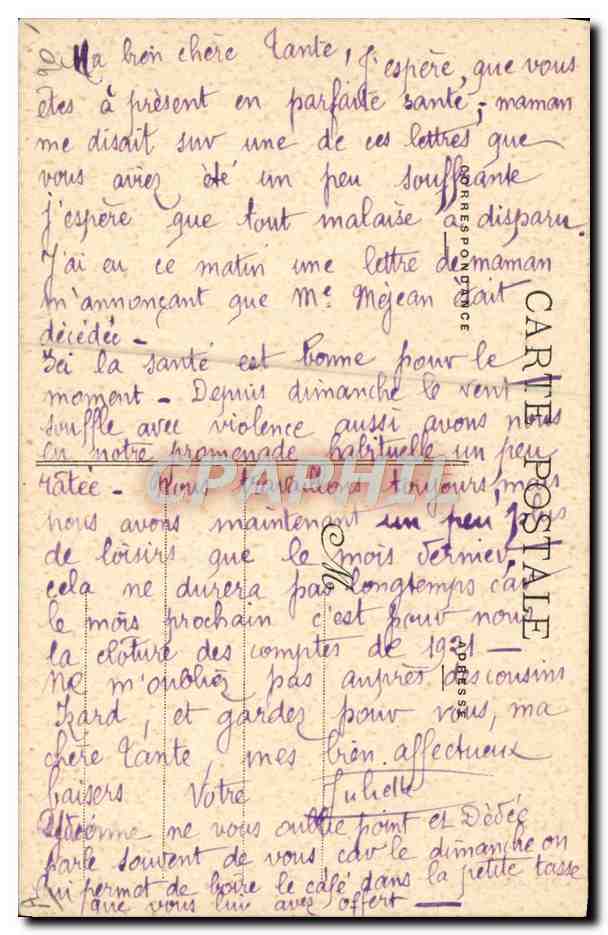 Ma bien chère Tante, J'espère, que vous
êtes à présent en parfaite santé, maman
me disait sur une de ces lettres que
vous aviez été un peu souffrante
j'espère que tout malaise a disparu.
J'ai eu ce matin une lettre de maman
m'annonçant que Me Méjean était
décédée -
Ici la santé est bonne pour le
moment - Depuis dimanche le vent
souffle avec violence aussi avons nous
en notre promenade habituelle un peu
ratée - Nous travaillons toujours, mais
nous avons maintenant un peu plus
de loisirs que le mois dernier,
cela ne durera pas longtemps car
le mois prochain c'est pour nous
la clôture des comptes de 1921 -
Ne m'oubliez pas auprès des cousins
Izard, et gardez pour vous, ma
chère Tante, mes bien affectueux
baisers Votre Juliette
ne vous oublie point et Dédée
parle souvent de vous car le dimanche on
lui permet de boire le café dans la petite tasse
que vous lui avez offert -
CARTE POSTALE
CORRESPONDANCE
ADRESSE
M
CPARAMA